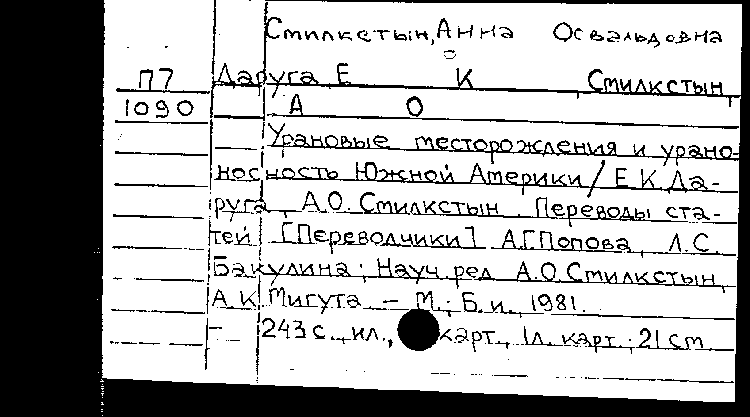 Смилкстын, Анна Освальдовна
П7 Даруга Е К , Смилкстын,
1090 А О
Урановые месторождения и урано-
носность Южной Америки / Е.К.Да-
руга, А.О.Смилкстын. Переводы ста-
тей [Переводчики] А.Г.Попова, Л.С.
Бакулина; Науч.ред. А.О.Смилкстын,
А.К.Мигута. – М.: Б.и., 1981.
– 243 с., ил., карт., 1л. карт.; 21 см.